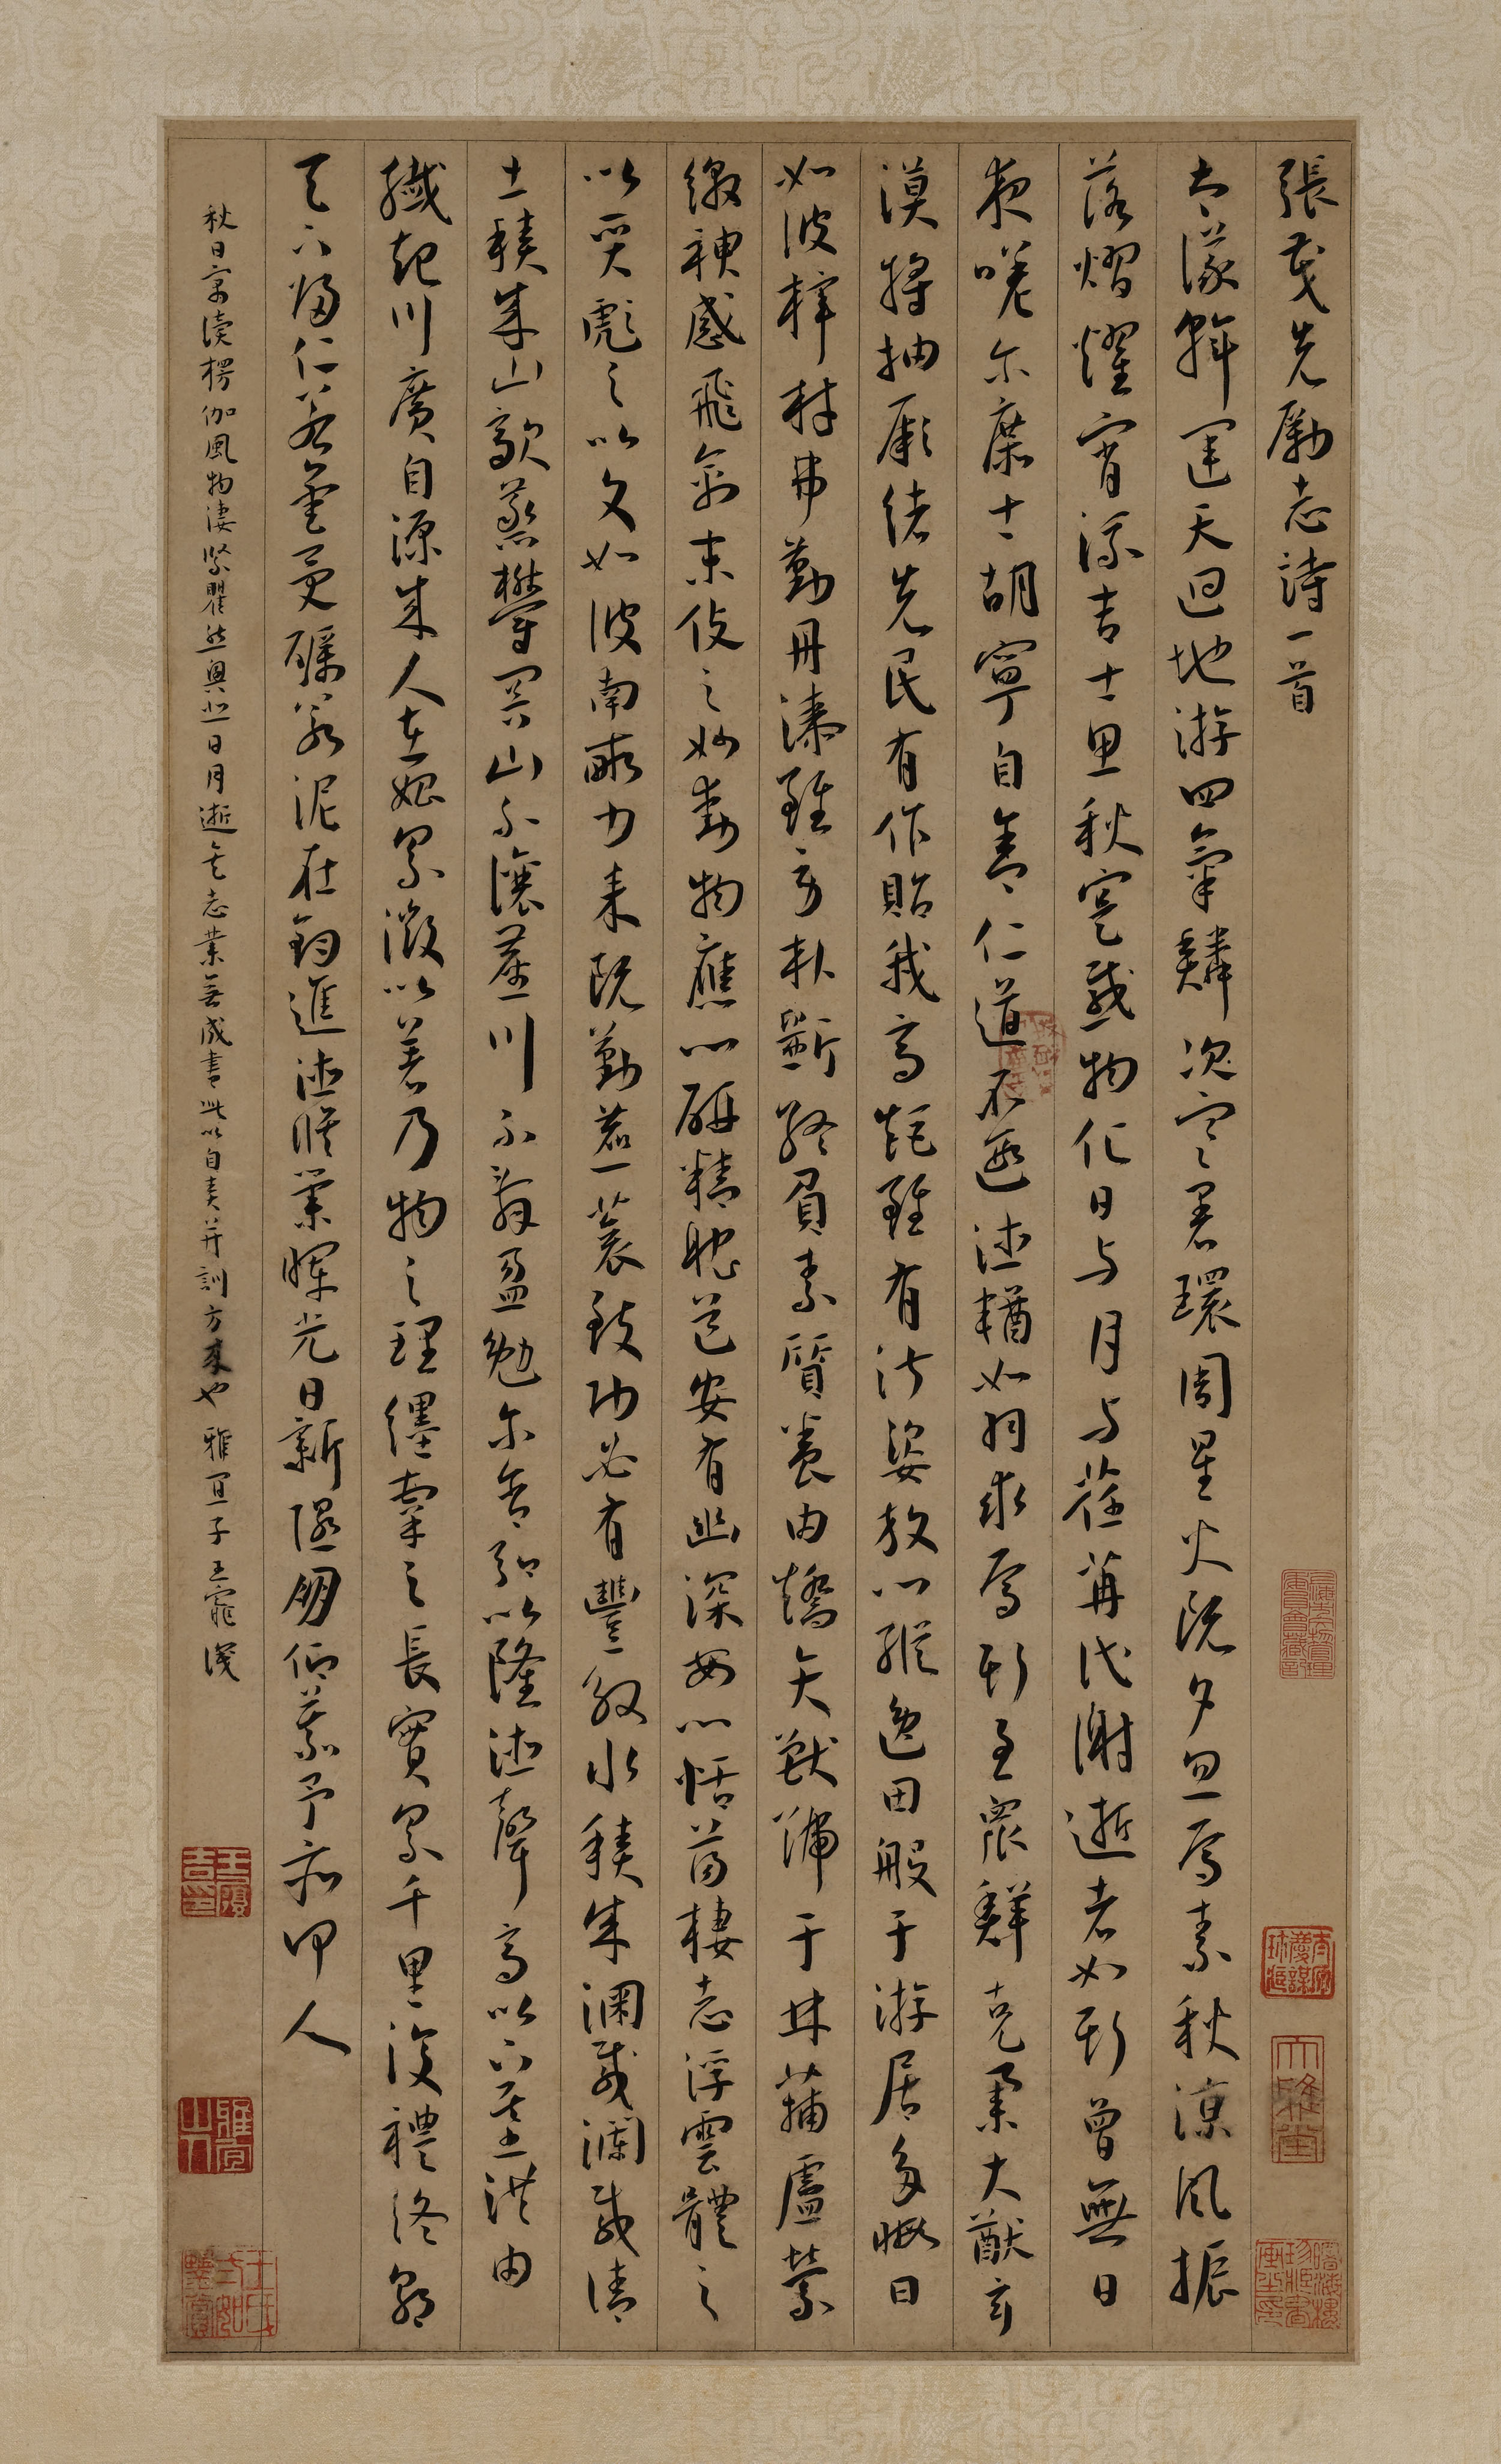 張茂先勵志詩一首
大儀斡運天迴地游四氣鱗次寒暑環周星火既夕忽焉素秋涼風振
落熠燿宵流吉士思秋寔感物化日与月与荏苒代謝逝者如斯曾無日
夜嗟尔庶士胡寧自舍仁道不遐德輶如羽求焉斯至眾鮮克舉大猷玄
漠將抽厥緒先民有作貽我高矩雖有淑姿放心縱逸田般于游居多暇日
如彼梓材弗勤丹漆雖勞朴斲終負素質養由矯矢獸號于林蒱盧縈
繳神感飛禽末伎之妙動物應心研精耽道安有幽深安心恬蕩棲志浮雲體之
以質彪之以文如彼南畝力耒既勤藨蓘致功必有豐殷水積成淵載瀾載清
土積成山歊蒸鬱冥山不讓塵川不辭盈勉尔含弘以隆德聲高以下基洪由
纖起川廣自源成人在始累微以著乃物之理纆牽之長實累千里復禮終朝
天下歸仁若金受礪若泥在鈞進德脩業暉光日新隰朋仰慕予亦何人
秋日寓讀楞伽風物淒緊瞿然興悲日月逝矣志業無成書此以自責并訓方來也 雅宜子王寵識
大雅堂
王履吉印
雅宜山人